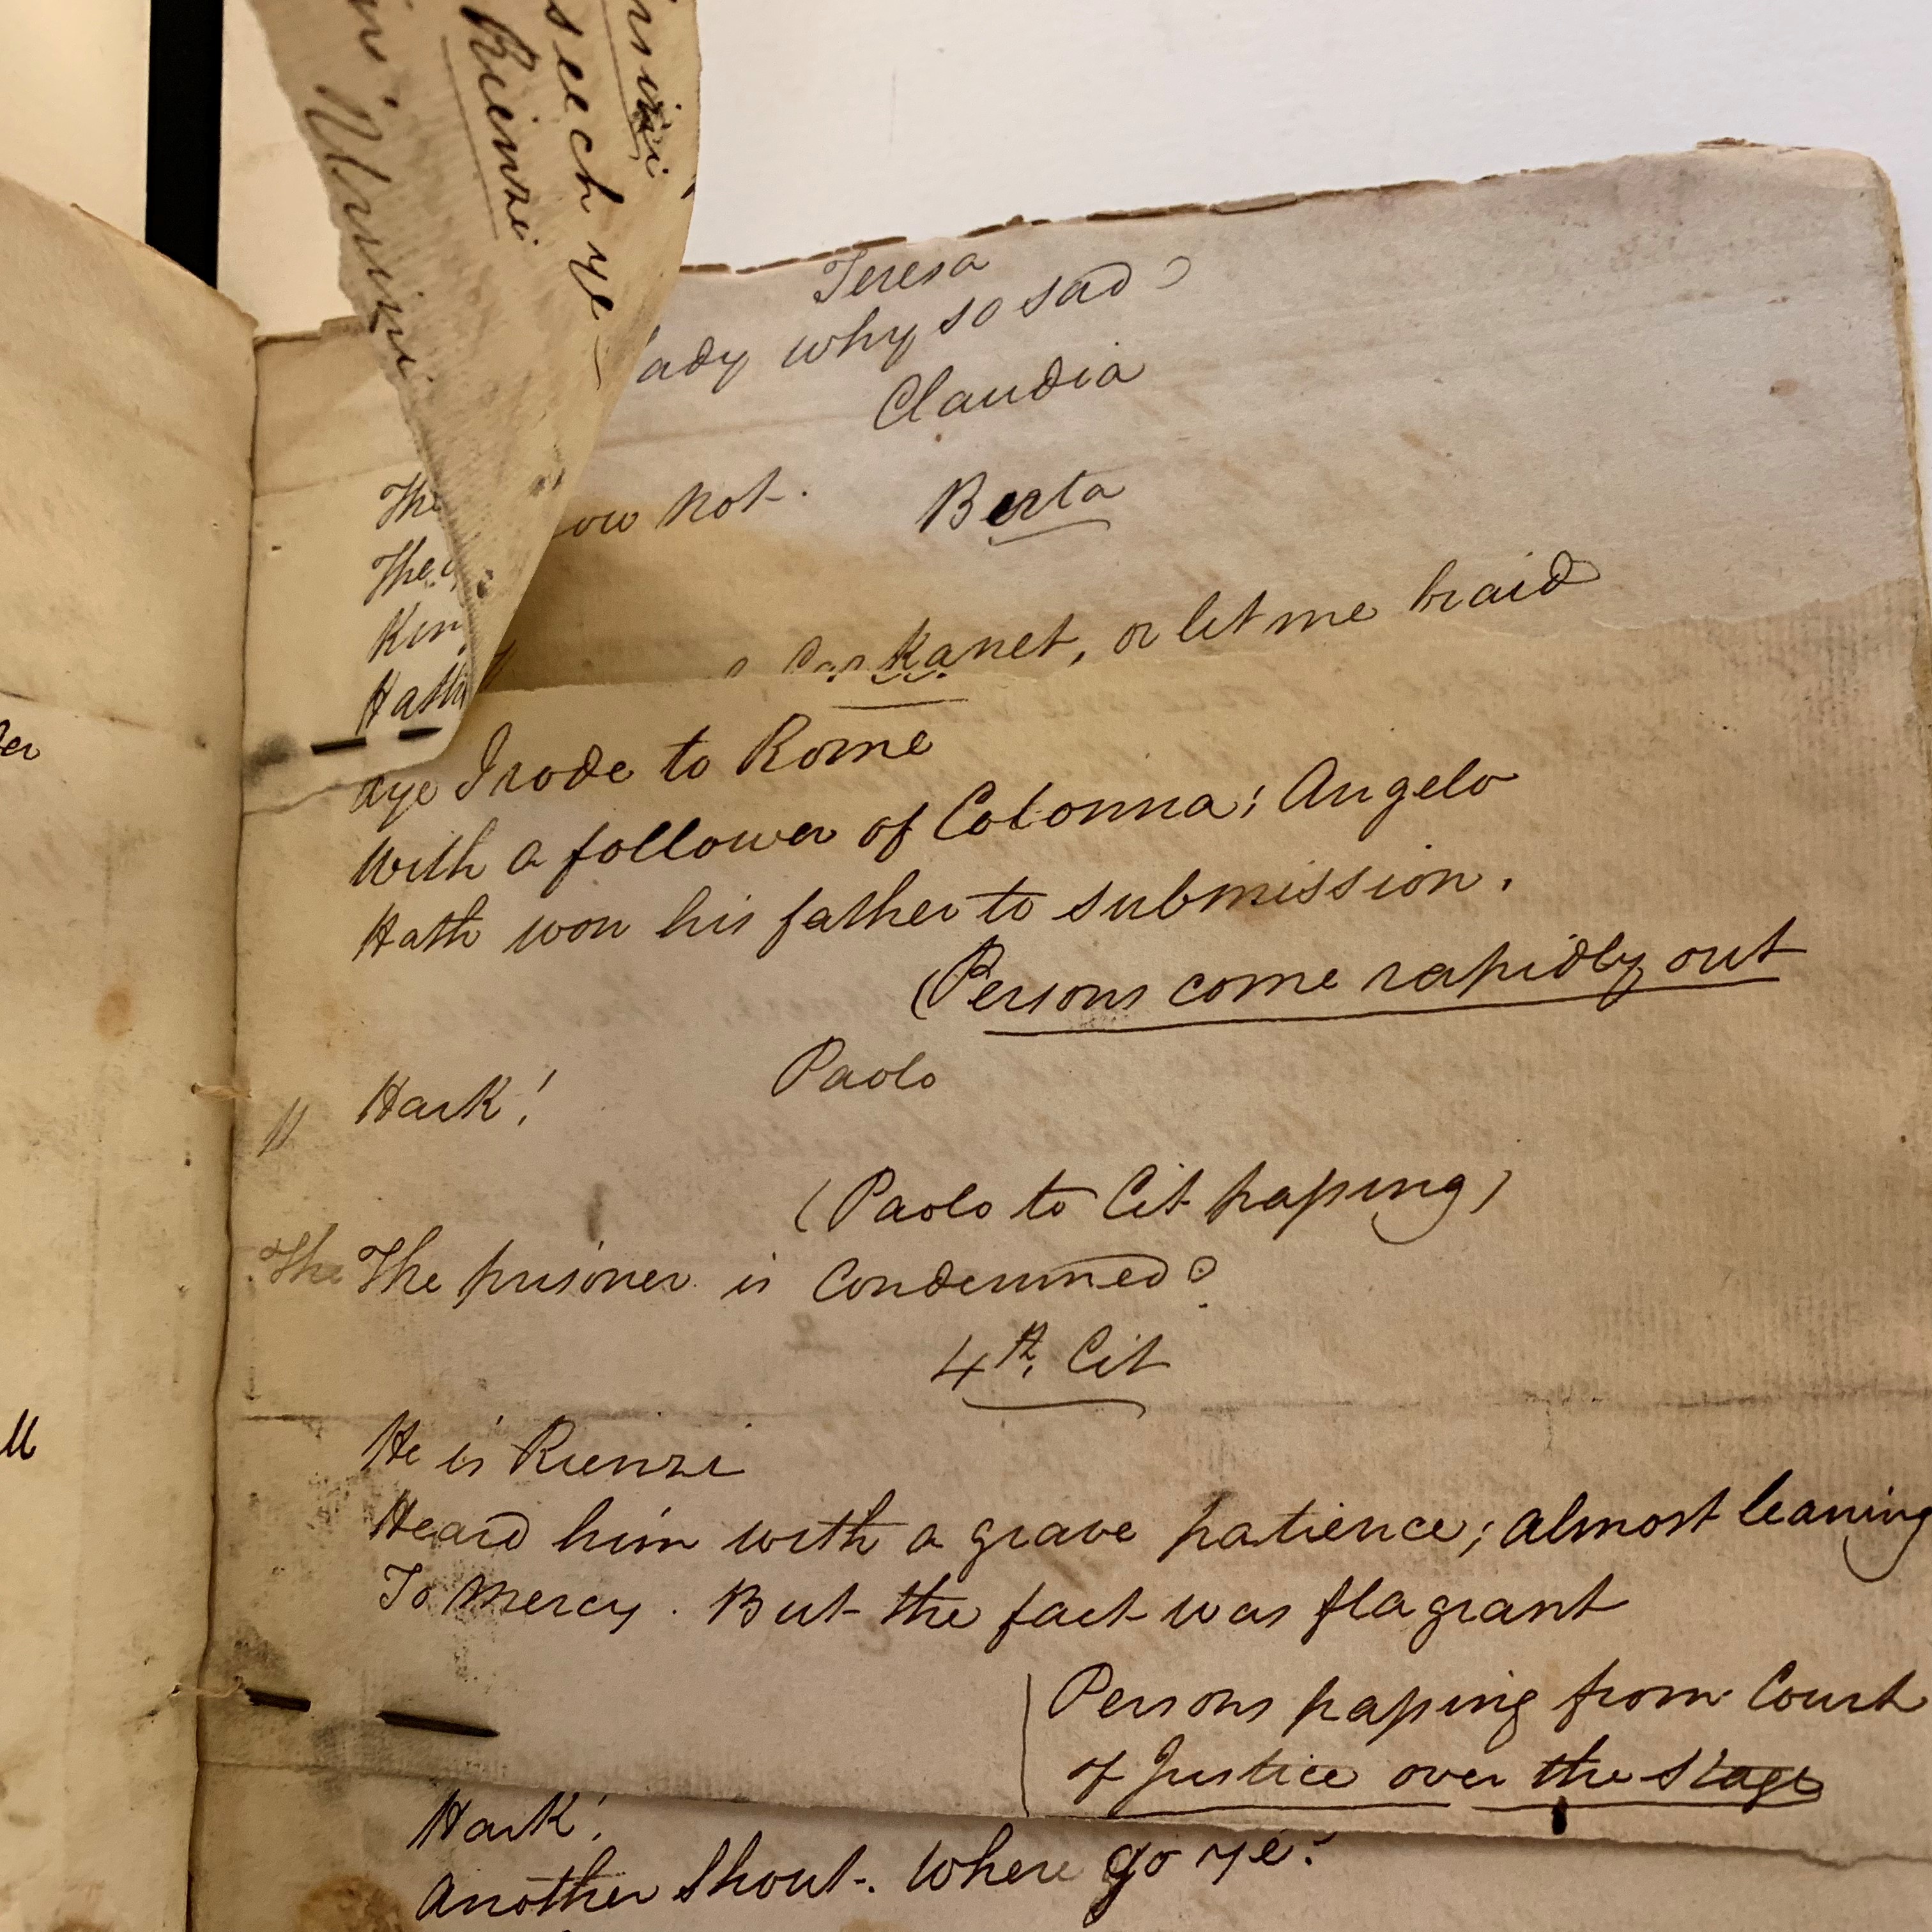 seech ye
Rienzi
Ursini
Teresa
ady why so sad?
Claudia
The
ow not.
Berta
The
Hath
net, or let me braid
aye I rode to Rome
With a follower of Colonna; Angelo
Hath won his father to submission.
(Persons come rapidly out
Paolo
Hark!
(Paolo to Cit paſsing)
The The prisoner is Condemned?
4th. Cit
He is Rienzi
Heard him with a grave patience; almost leaning
To Mercy. But the fact was flagrant
Persons paſsing from Court
of Justice over the Stage
Hark!
Another Shout. Where go ye?
er
ll